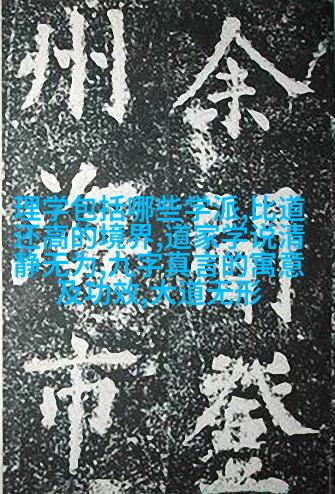 余登
州市
理学包括哪些学派,比道
还高的境界,道家学说清
静无为,九字真言的寓意
及功效,大道无形